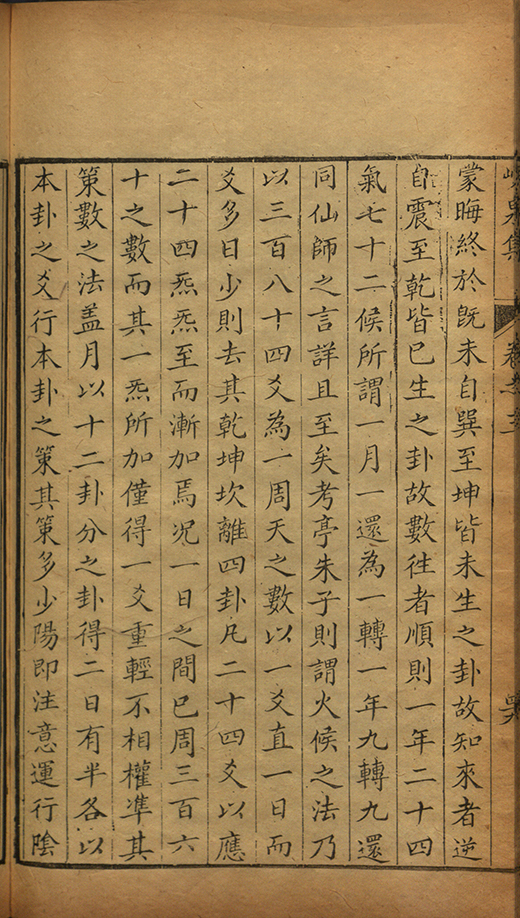 蒙晦終於既未自巽至坤皆未生之卦故知來者逆
自震至乾皆已生之卦故數徃者順則一年二十四
氣七十二候所謂一月一還為一轉一年九轉九還
同仙師之言詳且至矣考亭朱子則謂火候之法乃
以三百八十四爻為一周天之數以一爻直一日而
爻多日少則去其乾坤坎離四卦凡二十四爻以應
二十四炁炁至而漸加焉况一日之間已周三百六
十之數而其一炁所加僅得一爻重輕不相權凖其
策數之法盖月以十二卦分之卦得二日有半各以
本卦之爻行本卦之策其策多少陽即注意運行陰